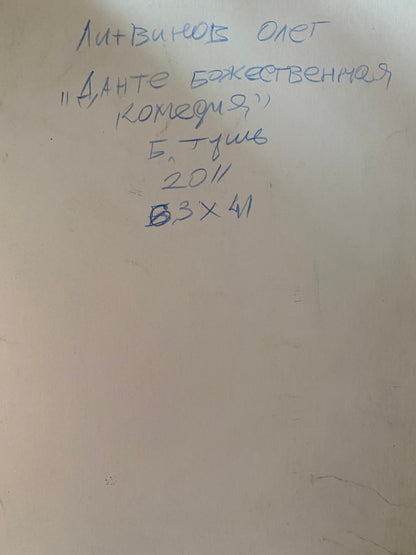 Литвинов Олег
"Данте Божественная
комедия"
Б. тушь
2011
63 x 41